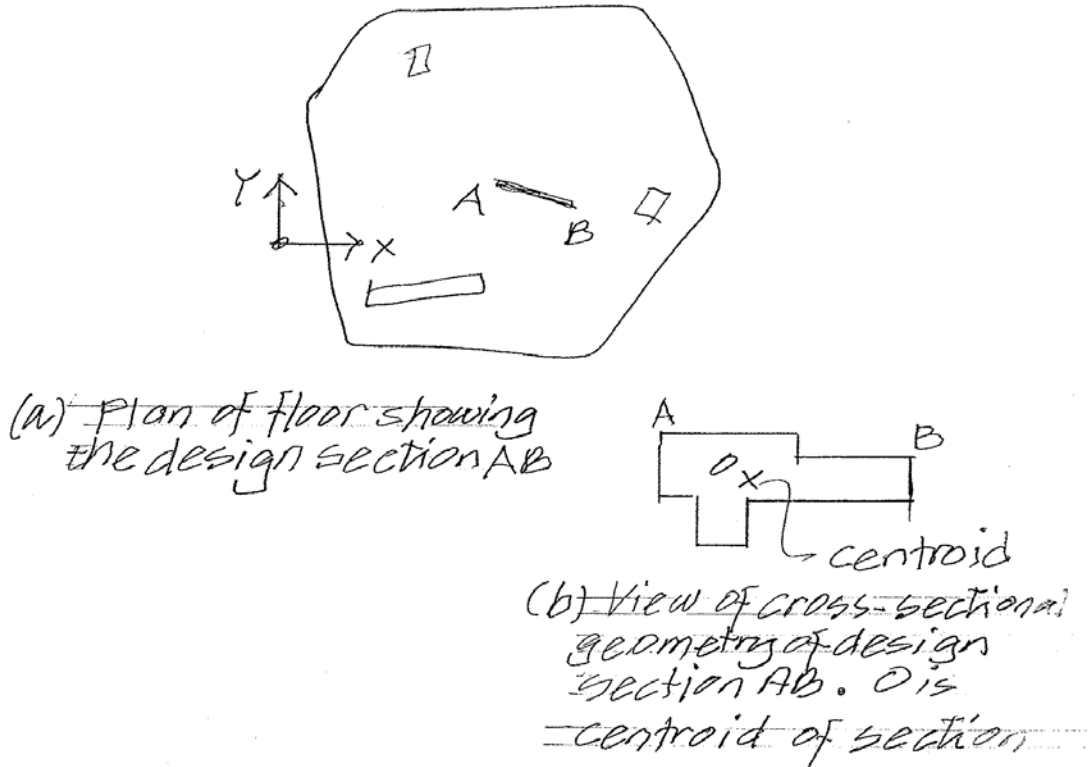 Y
A
B
X
(a) Plan of floor showing
the design section AB
A
B
O
X
centroid
(b) View of cross-sectional
geometry of design
section AB. O is
centroid of section